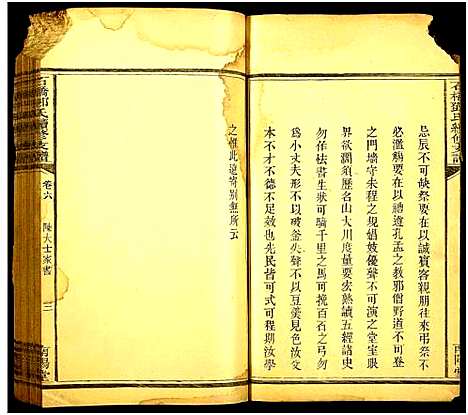 石橋鄧氏續修支譜
忌辰不可缺祭要在以誠賓客親朋往來弔祭不
必濫觴要在以禮道孔孟之教邪僧野道不可與
之門墻守朱程之規娼妓優聲不可令之堂室眼
界欲濶須歷名山大川度量要宏熟讀五經諸史
勿作祛書生狀可騎千里之馬可挽百石之弓勿
爲小丈夫形不以破釜失聲不以豆羹見色汝於
日不足效在在不求先民皆可式可程期汝學
之祖此遠寄別無所云
石橋鄧氏續修支譜
卷六
陵大士家書
三
南陽堂